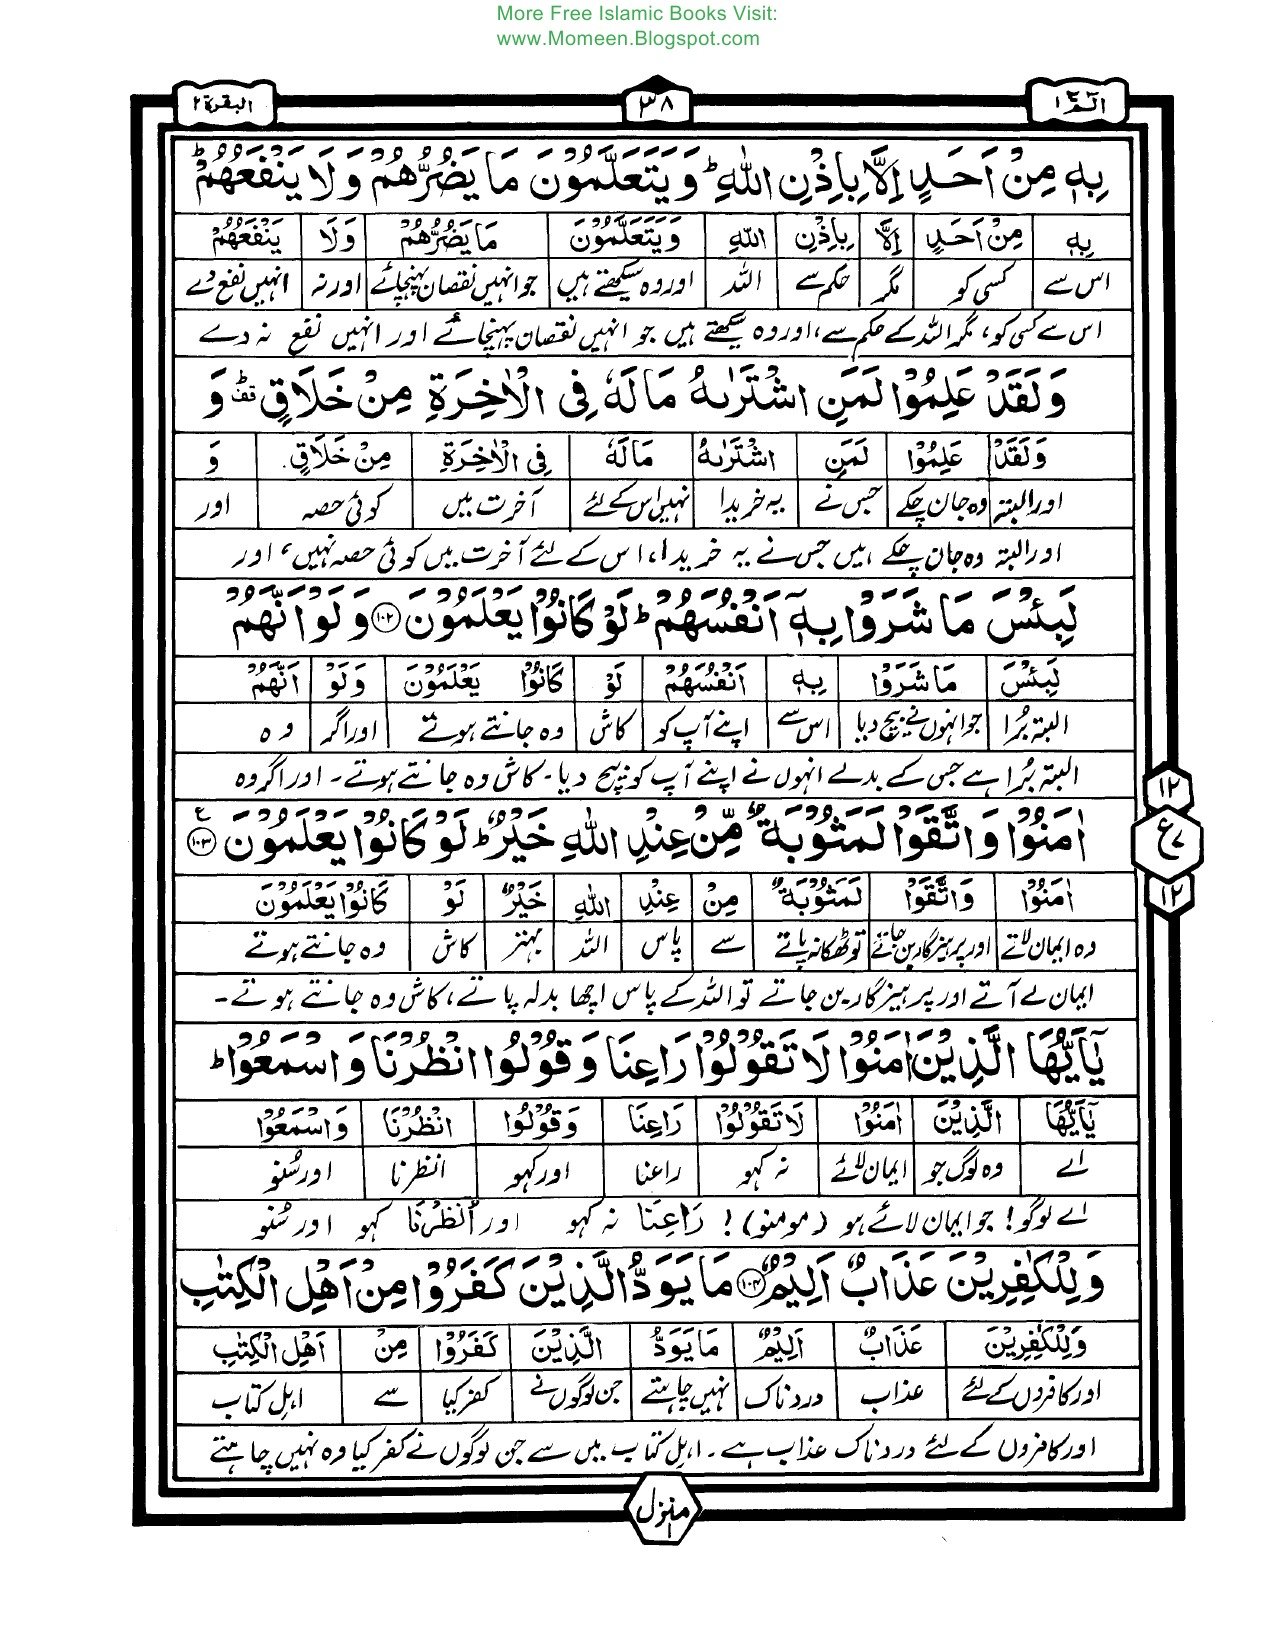 More Free Islamic Books Visit:
www.Momeen.Blogspot.com
الٓمّٓ ۱ ۳۸ البقرة ۲
بِهٖ مِنْ اَحَدٍ اِلَّا بِاِذْنِ اللّٰهِ ؕ وَيَتَعَلَّمُوْنَ مَا يَضُرُّهُمْ وَلَا يَنْفَعُهُمْ ؕ
بِهٖ مِنْ اَحَدٍ اِلَّا بِاِذْنِ اللّٰهِ وَيَتَعَلَّمُوْنَ مَا يَضُرُّهُمْ وَلَا يَنْفَعُهُمْ
اس سے کسی کو مگر حکم سے اللہ اور وہ سیکھتے ہیں جو انہیں نقصان پہنچائے اور نہ انہیں نفع دے
اس سے کسی کو، مگر اللہ کے حکم سے، اور وہ سیکھتے ہیں جو انہیں نقصان پہنچائے اور انہیں نفع نہ دے
وَلَقَدْ عَلِمُوْا لَمَنِ اشْتَرٰىهُ مَا لَهٗ فِى الْاٰخِرَةِ مِنْ خَلَاقٍ ؕ قف وَ
وَلَقَدْ عَلِمُوْا لَمَنِ اشْتَرٰىهُ مَا لَهٗ فِى الْاٰخِرَةِ مِنْ خَلَاقٍ وَ
اور البتہ وہ جان چکے جس نے یہ خریدا نہیں اس کے لئے آخرت میں کوئی حصہ اور
اور البتہ وہ جان چکے ہیں جس نے یہ خریدا، اس کے لئے آخرت میں کوئی حصہ نہیں، اور
لَبِئْسَ مَا شَرَوْا بِهٖٓ اَنْفُسَهُمْ ؕ لَوْ كَانُوْا يَعْلَمُوْنَ ۱۰۲ وَلَوْ اَنَّهُمْ
لَبِئْسَ مَا شَرَوْا بِهٖ اَنْفُسَهُمْ لَوْ كَانُوْا يَعْلَمُوْنَ وَلَوْ اَنَّهُمْ
البتہ بُرا جو انہوں نے بیچ دیا اس سے اپنے آپ کو کاش وہ جانتے ہوتے اور اگر وہ
البتہ بُرا ہے جس کے بدلے انہوں نے اپنے آپ کو بیچ دیا۔ کاش وہ جانتے ہوتے۔ اور اگر وہ
اٰمَنُوْا وَاتَّقَوْا لَمَثُوْبَةٌ مِّنْ عِنْدِ اللّٰهِ خَيْرٌ ؕ لَوْ كَانُوْا يَعْلَمُوْنَ ۱۰۳ ع
۱۲
ع ۷
۱۲
اٰمَنُوْا وَاتَّقَوْا لَمَثُوْبَةٌ مِنْ عِنْدِ اللّٰهِ خَيْرٌ لَوْ كَانُوْا يَعْلَمُوْنَ
وہ ایمان لاتے اور پرہیزگار بن جاتے تو ٹھکانہ پاتے سے پاس اللہ بہتر کاش وہ جانتے ہوتے
ایمان لے آتے اور پرہیزگار بن جاتے تو اللہ کے پاس اچھا بدلہ پاتے، کاش وہ جانتے ہوتے۔
يٰٓاَيُّهَا الَّذِيْنَ اٰمَنُوْا لَا تَقُوْلُوْا رَاعِنَا وَقُوْلُوا انْظُرْنَا وَاسْمَعُوْا ؕ
يٰٓاَيُّهَا الَّذِيْنَ اٰمَنُوْا لَا تَقُوْلُوْا رَاعِنَا وَقُوْلُوا انْظُرْنَا وَاسْمَعُوْا
اے وہ لوگ جو ایمان لائے نہ کہو راعنا اور کہو انظرنا اور سُنو
اے لوگو! جو ایمان لائے ہو (مومنو)! رَاعِنَا نہ کہو اور اُنْظُرْنَا کہو اور سُنو
وَلِلْكٰفِرِيْنَ عَذَابٌ اَلِيْمٌ ۱۰۴ مَا يَوَدُّ الَّذِيْنَ كَفَرُوْا مِنْ اَهْلِ الْكِتٰبِ
وَلِلْكٰفِرِيْنَ عَذَابٌ اَلِيْمٌ مَا يَوَدُّ الَّذِيْنَ كَفَرُوْا مِنْ اَهْلِ الْكِتٰبِ
اور کافروں کے لئے عذاب دردناک نہیں چاہتے جن لوگوں نے کفر کیا سے اہل کتاب
اور کافروں کے لئے دردناک عذاب ہے۔ اہل کتاب میں سے جن لوگوں نے کفر کیا وہ نہیں چاہتے
منزل ۱